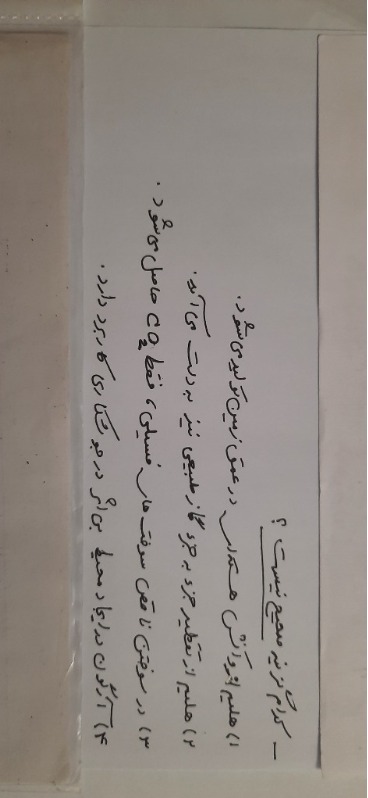 ـ کدام گزینه صحیح نیست ؟
۱) هلیم از واکنش هسته‌ای در عمق زمین تولید می‌شود.
۲) هلیم از تقطیر جزء به جزء گاز طبیعی نیز به دست می‌آید.
۳) در سوختن ناقص سوخت های فسیلی ، فقط CO2 حاصل می‌شود .
۴) آرگون در ایجاد محیط بی‌اثر در جوشکاری کاربرد دارد .